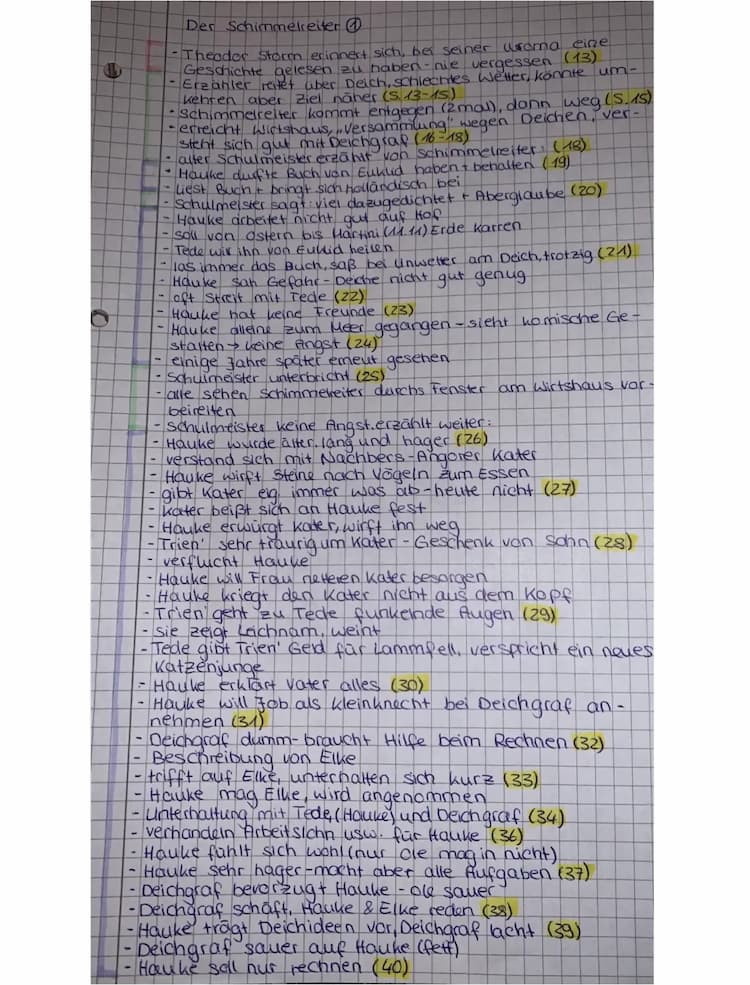 Der Schimmelreiter ①
- Theodor Storm erinnert sich, bei seiner Uroma eine
Geschichte gelesen zu haben - nie vergessen (13)
- Erzähler reitet über Deich, schlechtes Wetter, könnte um-
kehren aber Ziel näher (S. 13-15)
- Schimmelreiter kommt entgegen (2mal), dann weg (S. 15)
- erreicht Wirtshaus, „Versammlung" wegen Deichen, ver-
steht sich gut mit Deichgraf (16-18)
- alter Schulmeister erzählt von Schimmelreiter: (18)
- Hauke durfte Buch von Euklid haben + behalten (19)
- liest Buch + bringt sich holländisch bei
- Schulmeister sagt: viel dazugedichtet + Aberglaube (20)
- Hauke arbeitet nicht gut auf Hof
- soll von Ostern bis Martini (11.11) Erde karren
- Tede will ihn von Euklid heilen
- las immer das Buch, saß bei Unwetter am Deich, trotzig (21)
- Hauke sah Gefahr - Deiche nicht gut genug
- oft Streit mit Tede (22)
- Hauke hat keine Freunde (23)
- Hauke alleine zum Meer gegangen - sieht komische Ge-
stalten → keine Angst (24)
- einige Jahre später erneut gesehen
- Schulmeister unterbricht (25)
- alle sehen Schimmelreiter durchs Fenster am Wirtshaus vor-
beireiten
- Schulmeister keine Angst, erzählt weiter:
- Hauke wurde älter, lang und hager (26)
- verstand sich mit Nachbers-Angorer Kater
- Hauke wirft Steine nach Vögeln zum Essen
- gibt Kater eig. immer was ab - heute nicht (27)
- Kater beißt sich an Hauke fest
- Hauke erwürgt Kater, wirft ihn weg
- Trien' sehr traurig um Kater - Geschenk von Sohn (28)
- verflucht Hauke
- Hauke will Frau netteren Kater besorgen
- Hauke kriegt den Kater nicht aus dem Kopf
- Trien' geht zu Tede funkelnde Augen (29)
- sie zeigt Leichnam, weint
- Tede gibt Trien' Geld für Lammfell, verspricht ein neues
Katzenjunge
- Hauke erklärt Vater alles (30)
- Hauke will Job als Kleinknecht bei Deichgraf an-
nehmen (31)
- Deichgraf dumm - braucht Hilfe beim Rechnen (32)
- Beschreibung von Elke
- trifft auf Elke, unterhalten sich kurz (33)
- Hauke mag Elke, wird angenommen
- Unterhaltung mit Tede, (Hauke) und Deichgraf (34)
- verhandeln Arbeitslohn usw. für Hauke (36)
- Hauke fühlt sich wohl (nur Ole mag in nicht)
- Hauke sehr hager - macht aber alle Aufgaben (37)
- Deichgraf bevorzugt Hauke - Ole sauer
- Deichgraf schäft, Hauke & Elke reden (38)
- Hauke trägt Deichideen vor, Deichgraf lacht (39)
- Deichgraf sauer auf Hauke (fett)
- Hauke soll nur rechnen (40)